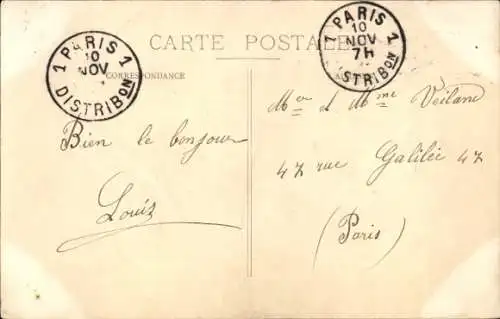 CARTE POSTALE
CORRESPONDANCE
1 PARIS 1
10
NOV
DISTRIBON
1 PARIS 1
10
NOV
7H
STRIBON
Bien le bonjour
Louis
Mer & Mme Veiland
47 rue Galilée 47
(Paris)